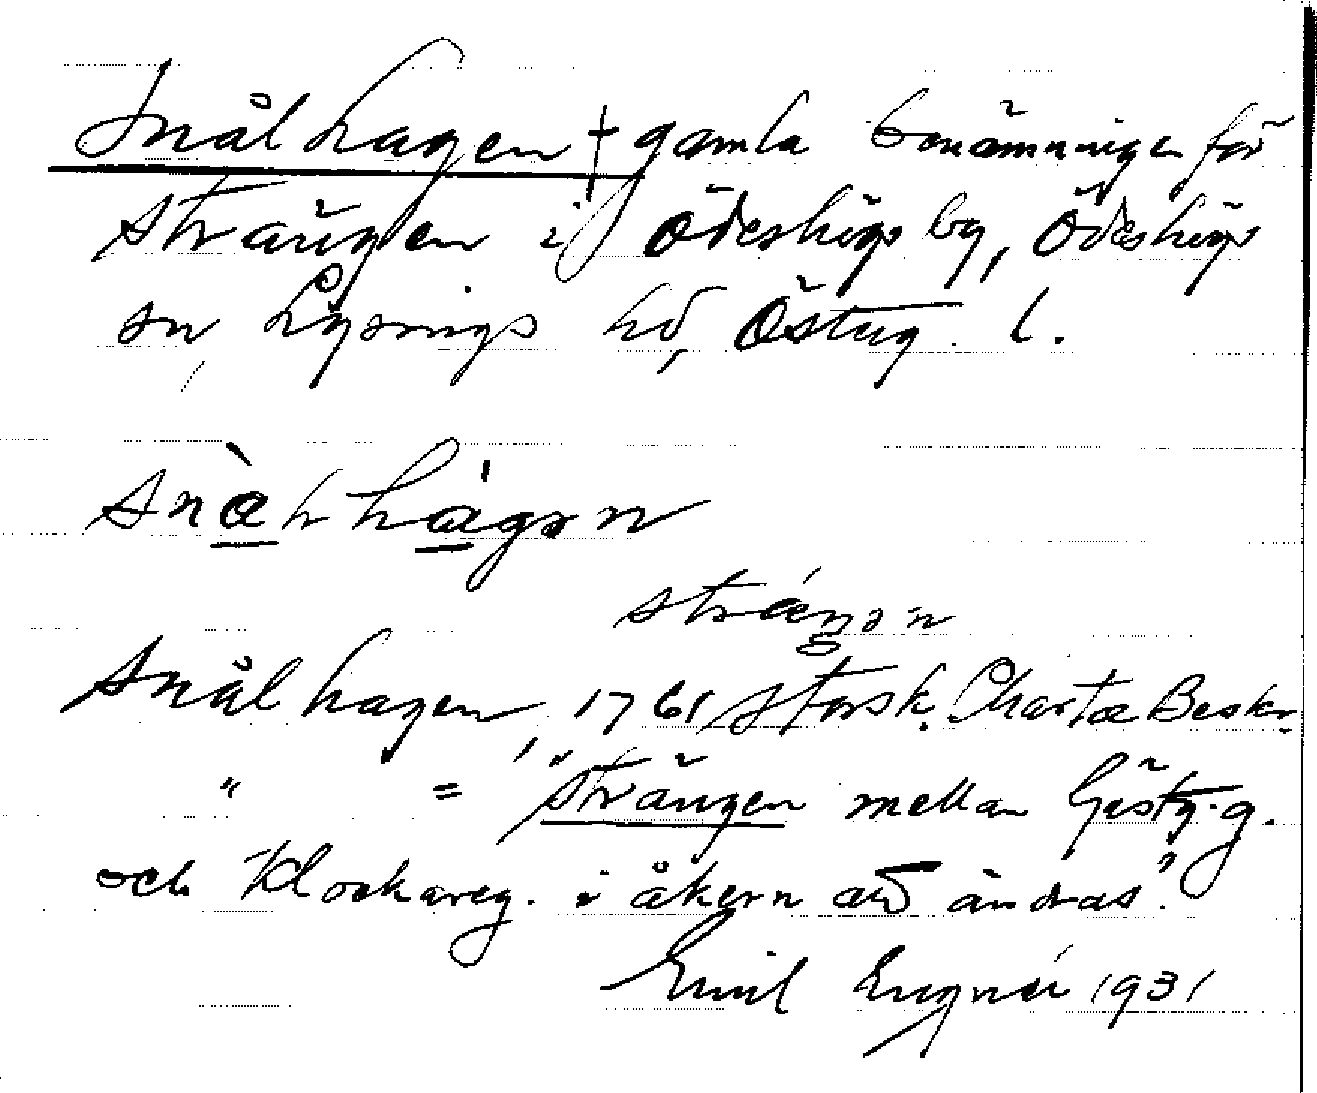 Snålhagen † gamla benämningen för
Strängen i Ödeshögs by, Ödeshögs
sn, Lysings hd, Östug. l.
snàlhágən
sträŋən
Snålhagen, 1761 Storsk. Charta Beskr.
" = "Strängen mellan Gästg.g.
och Klockareg. i åkern att ändras".
Emil 1931